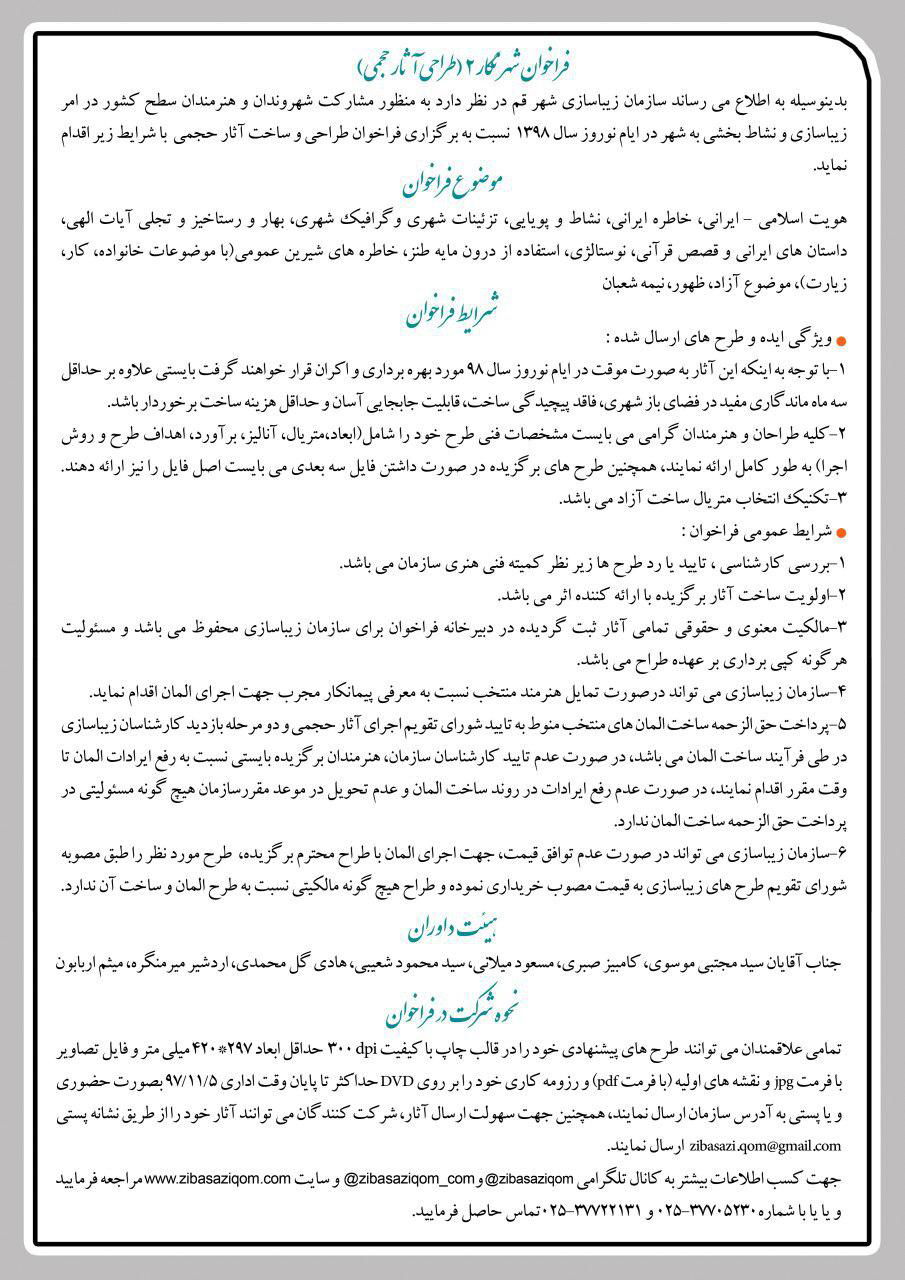 فراخوان شهر نگار ۲ (طراحی آثار حجمی)
بدینوسیله به اطلاع می رساند سازمان زیباسازی شهر قم در نظر دارد به منظور مشارکت شهروندان و هنرمندان سطح کشور در امر
زیباسازی و نشاط بخشی به شهر در ایام نوروز سال ۱۳۹۸ نسبت به برگزاری فراخوان طراحی و ساخت آثار حجمی با شرایط زیر اقدام
نماید.
موضوع فراخوان
هویت اسلامی – ایرانی، خاطره ایرانی، نشاط و پویایی، تزئینات شهری وگرافیک شهری، بهار و رستاخیز و تجلی آیات الهی،
داستان های ایرانی و قصص قرآنی، نوستالژی، استفاده از درون مایه طنز، خاطره های شیرین عمومی(با موضوعات خانواده، کار،
زیارت)، موضوع آزاد، ظهور، نیمه شعبان
شرایط فراخوان
● ویژگی ایده و طرح های ارسال شده :
۱-با توجه به اینکه این آثار به صورت موقت در ایام نوروز سال ۹۸ مورد بهره برداری و اکران قرار خواهند گرفت بایستی علاوه بر حداقل
سه ماه ماندگاری مفید در فضای باز شهری، فاقد پیچیدگی ساخت، قابلیت جابجایی آسان و حداقل هزینه ساخت برخوردار باشد.
۲-کلیه طراحان و هنرمندان گرامی می بایست مشخصات فنی طرح خود را شامل(ابعاد،متریال، آنالیز، برآورد، اهداف طرح و روش
اجرا) به طور کامل ارائه نمایند، همچنین طرح های برگزیده در صورت داشتن فایل سه بعدی می بایست اصل فایل را نیز ارائه دهند.
۳-تکنیک انتخاب متریال ساخت آزاد می باشد.
● شرایط عمومی فراخوان :
۱-بررسی کارشناسی ، تایید یا رد طرح ها زیر نظر کمیته فنی هنری سازمان می باشد.
۲-اولویت ساخت آثار برگزیده با ارائه کننده اثر می باشد.
۳-مالکیت معنوی و حقوقی تمامی آثار ثبت گردیده در دبیرخانه فراخوان برای سازمان زیباسازی محفوظ می باشد و مسئولیت
هرگونه کپی برداری بر عهده طراح می باشد.
۴-سازمان زیباسازی می تواند درصورت تمایل هنرمند منتخب نسبت به معرفی پیمانکار مجرب جهت اجرای المان اقدام نماید.
۵-پرداخت حق الزحمه ساخت المان های منتخب منوط به تایید شورای تقویم اجرای آثار حجمی و دو مرحله بازدید کارشناسان زیباسازی
در طی فرآیند ساخت المان می باشد، در صورت عدم تایید کارشناسان سازمان، هنرمندان برگزیده بایستی نسبت به رفع ایرادات المان تا
وقت مقرر اقدام نمایند، در صورت عدم رفع ایرادات در روند ساخت المان و عدم تحویل در موعد مقررسازمان هیچ گونه مسئولیتی در
پرداخت حق الزحمه ساخت المان ندارد.
۶-سازمان زیباسازی می تواند در صورت عدم توافق قیمت، جهت اجرای المان با طراح محترم برگزیده، طرح مورد نظر را طبق مصوبه
شورای تقویم طرح های زیباسازی به قیمت مصوب خریداری نموده و طراح هیچ گونه مالکیتی نسبت به طرح المان و ساخت آن ندارد.
هیئت داوران
جناب آقایان سید مجتبی موسوی، کامبیز صبری، مسعود میلانی، سید محمود شعیبی، هادی گل محمدی، اردشیر میرمنگره، میثم اربابون
نحوه شرکت در فراخوان
تمامی علاقمندان می توانند طرح های پیشنهادی خود را در قالب چاپ با کیفیت ۳۰۰ dpi حداقل ابعاد ۲۹۷*۴۲۰ میلی متر و فایل تصاویر
با فرمت jpg و نقشه های اولیه (با فرمت pdf) و رزومه کاری خود را بر روی DVD حداکثر تا پایان وقت اداری ۹۷/۱۱/۵ بصورت حضوری
و یا پستی به آدرس سازمان ارسال نمایند، همچنین جهت سهولت ارسال آثار، شرکت کنندگان می توانند آثار خود را از طریق نشانه پستی
zibasazi.qom@gmail.com ارسال نمایند.
جهت کسب اطلاعات بیشتر به کانال تلگرامی @zibasaziqom و @zibasaziqom_com و سایت www.zibasaziqom.com مراجعه فرمایید
و یا یا با شماره ۳۷۷۰۵۲۳۰-۰۲۵ و ۳۷۷۲۲۱۳۱-۰۲۵ تماس حاصل فرمایید.